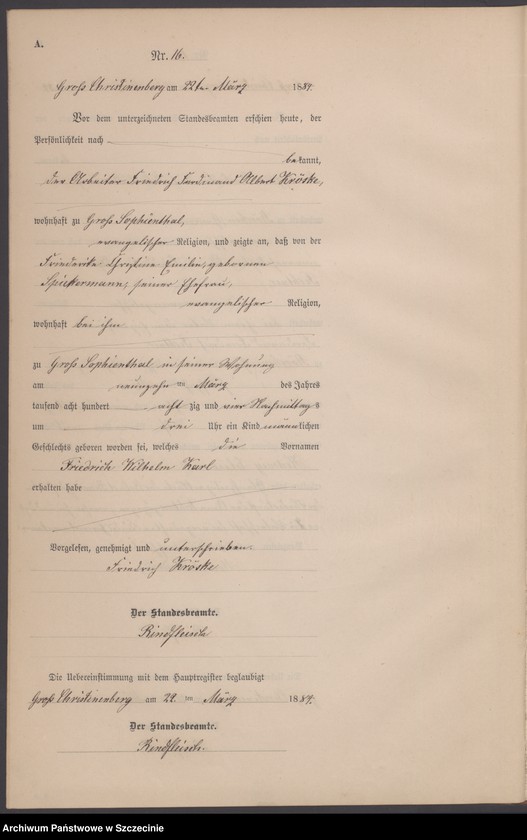 A.
Nr. 16.
Groß Christinenberg am 22ten März 1884.
Vor dem unterzeichneten Standesbeamten erschien heute, der
Persönlichkeit nach
bekannt,
der Arbeiter Friedrich Ferdinand Albert Kröske,
wohnhaft zu Groß Sophienthal,
evangelischer Religion, und zeigte an, daß von der
Friederike Christine Emilie, gebornen
Spickermann, seiner Ehefrau,
evangelischer Religion,
wohnhaft bei ihm
zu Groß Sophienthal in seiner Wohnung
am neunzehn ten März des Jahres
tausend acht hundert acht zig und vier Nachmittags
um drei Uhr ein Kind männlichen
Geschlechts geboren worden sei, welches die Vornamen
Friedrich Wilhelm Karl
erhalten habe
Vorgelesen, genehmigt und unterschrieben.
Friedrich Kröske
Der Standesbeamte.
Rindfleisch
Die Uebereinstimmung mit dem Hauptregister beglaubigt
Groß Christinenberg am 22. ten März 1884.
Der Standesbeamte.
Rindfleisch.
Archiwum Państwowe w Szczecinie